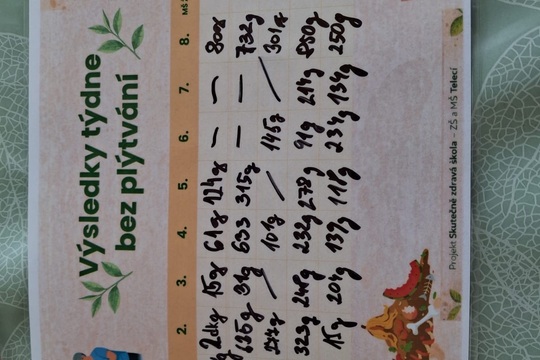 Výsledky týdne
bez plýtvání
2. 3. 4. 5. 6. 7. 8. MŠ
2dkg 15g 61g 124g — — 80g
635g 31g 633 315g — — 732g
/ 101g / 145g / 301g
323g 232g 278g 91g 214g
15g 204g 139g 118g 234g 134g 250g
Projekt Skutečně zdravá škola – ZŠ a MŠ Telecí